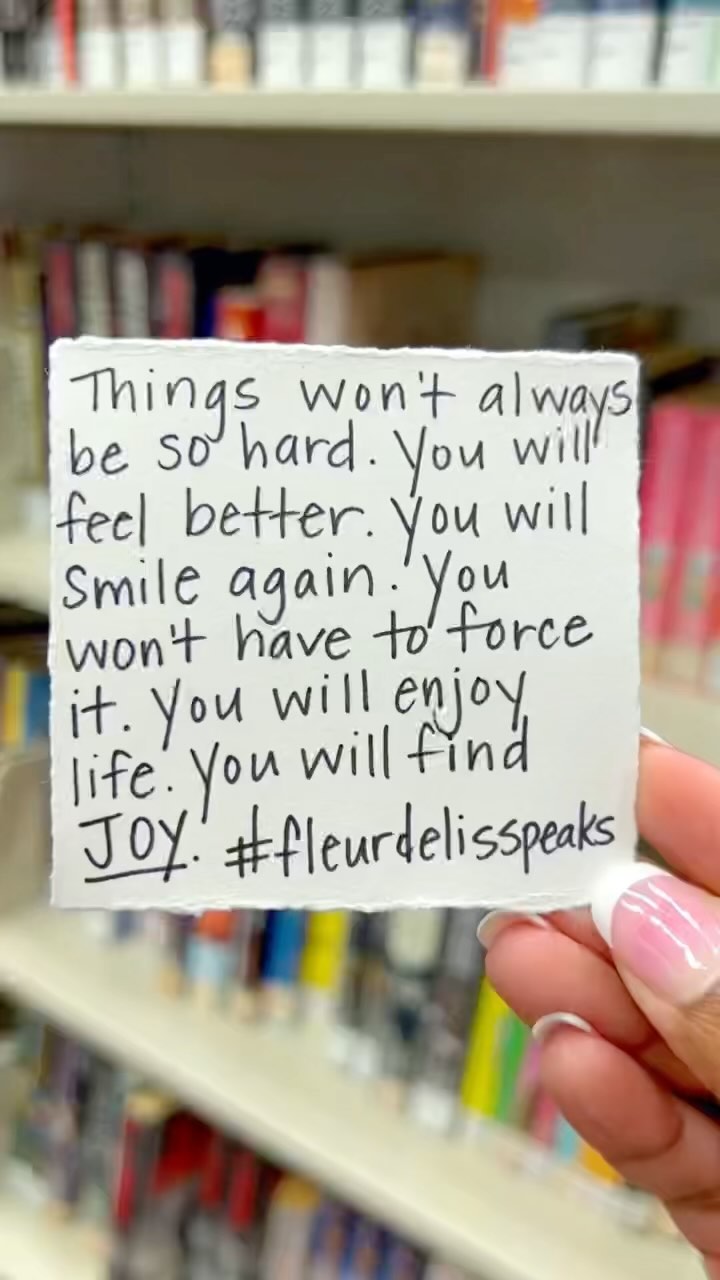 Things won't always
be so hard. You will
feel better. You will
smile again. You
won't have to force
it. You will enjoy
life. You will find
JOY. #fleurdelisspeaks